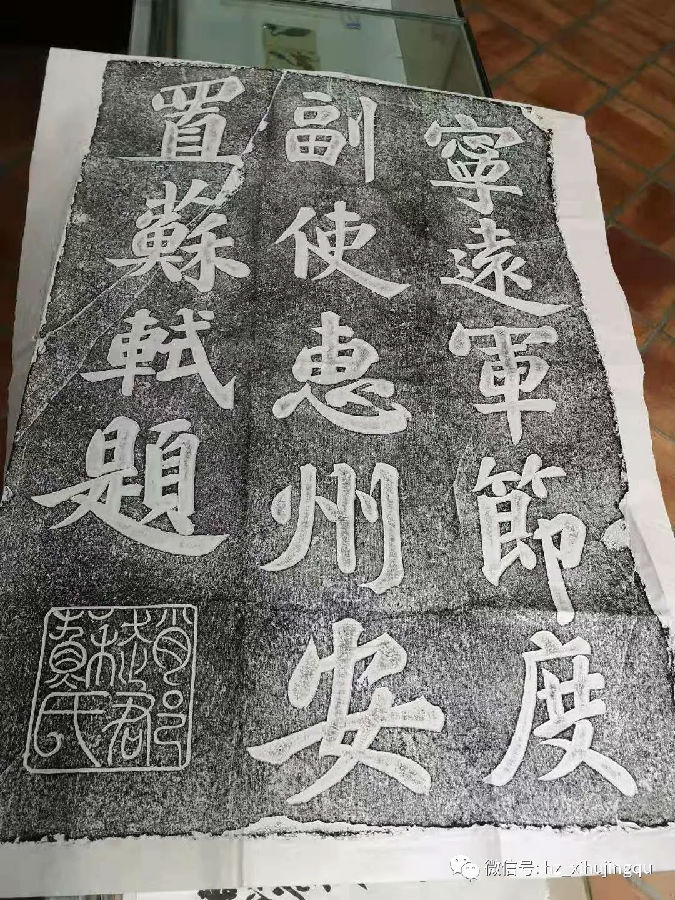 寧遠軍節度
副使惠州安
置蘇軾題
趙郡
蘇氏
微信号:hz_xihujingqu